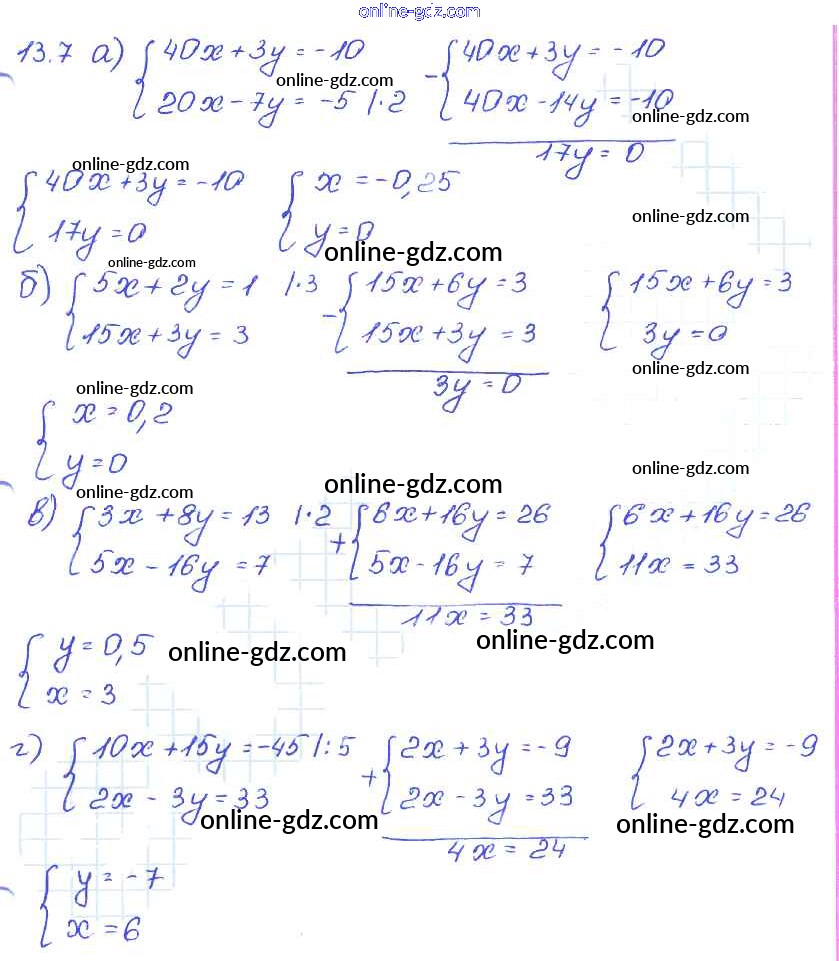 online-gdz.com
13.7 а) { 40x + 3y = -10      - { 40x + 3y = -10
online-gdz.com
{ 20x - 7y = -5 |·2      { 40x - 14y = -10
online-gdz.com
17y = 0
online-gdz.com
{ 40x + 3y = -10      { x = -0,25
online-gdz.com
{ 17y = 0      { y = 0
online-gdz.com
online-gdz.com
б) { 5x + 2y = 1 |·3      - { 15x + 6y = 3      { 15x + 6y = 3
{ 15x + 3y = 3      { 15x + 3y = 3      { 3y = 0
online-gdz.com
3y = 0
online-gdz.com
{ x = 0,2
{ y = 0
online-gdz.com
online-gdz.com
online-gdz.com
в) { 3x + 8y = 13 |·2      + { 6x + 16y = 26      { 6x + 16y = 26
{ 5x - 16y = 7      { 5x - 16y = 7      { 11x = 33
11x = 33
online-gdz.com
{ y = 0,5
online-gdz.com
{ x = 3
г) { 10x + 15y = -45 |:5      + { 2x + 3y = -9      { 2x + 3y = -9
{ 2x - 3y = 33      { 2x - 3y = 33      { 4x = 24
online-gdz.com
online-gdz.com
4x = 24
{ y = -7
{ x = 6